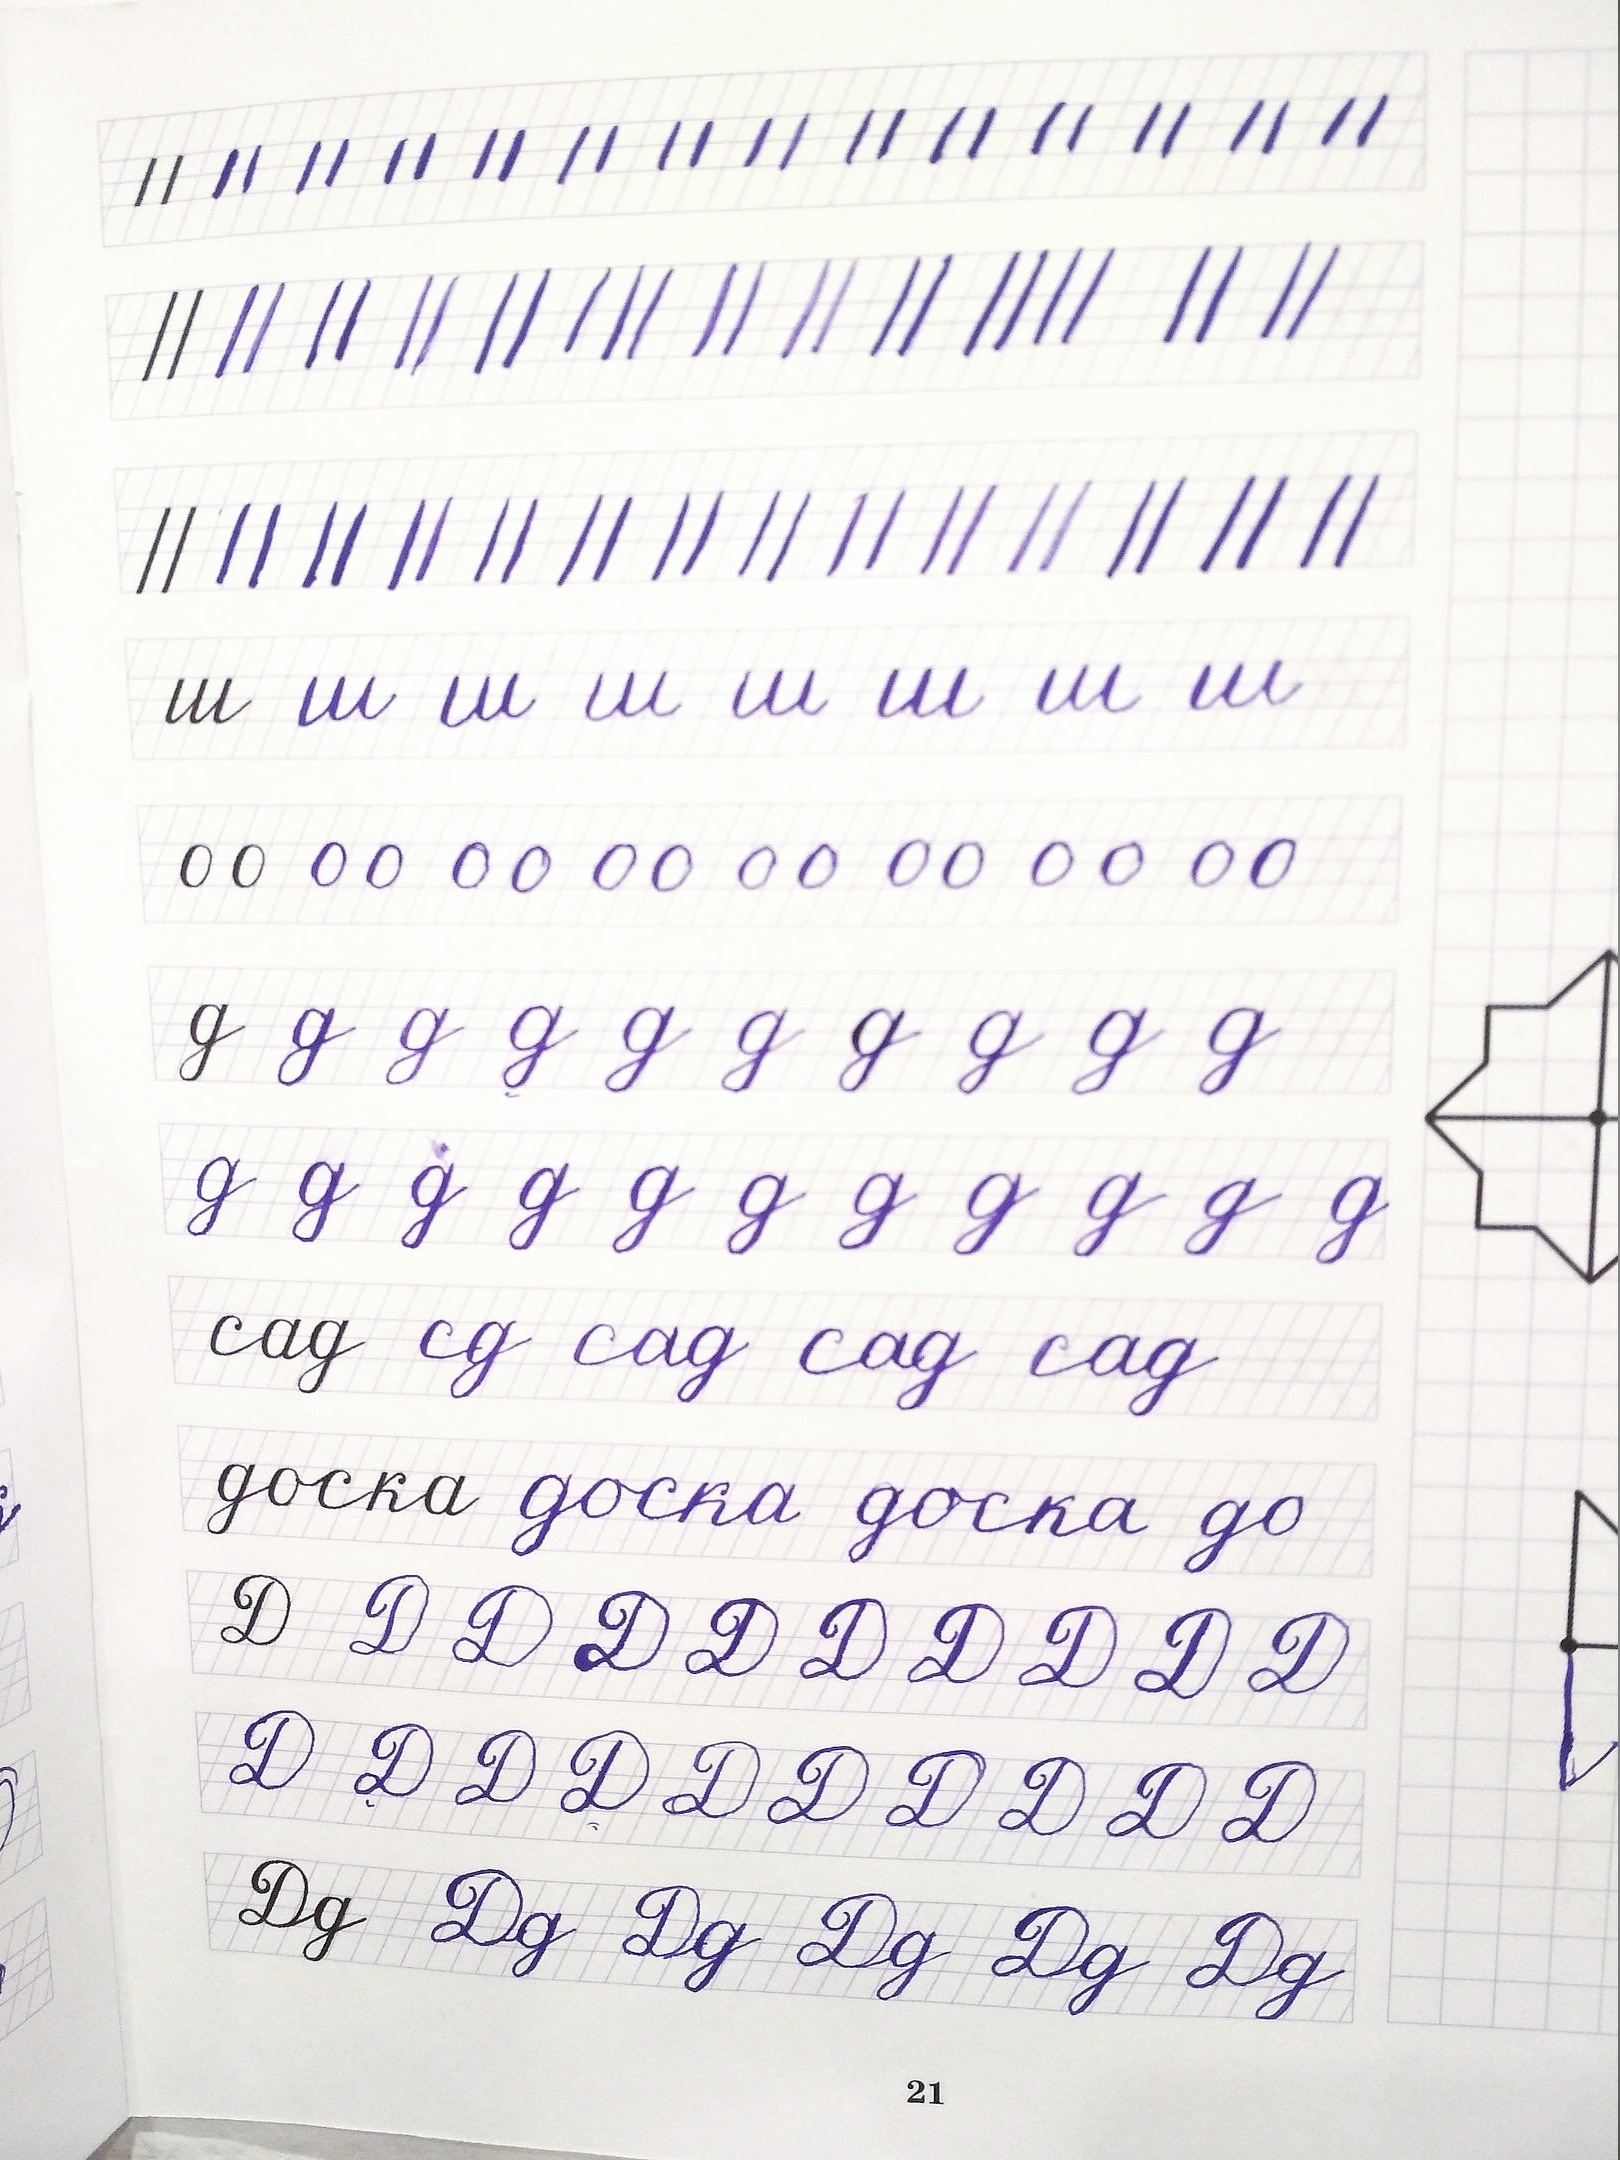 ш ш ш ш ш ш ш ш
оо оо оо оо оо оо оо оо
д д д д д д д д д д
д д д д д д д д д д д
сад сд сад сад сад
доска доска доска до
Д Д Д Д Д Д Д Д Д Д
Д Д Д Д Д Д Д Д Д Д
Дд Дд Дд Дд Дд Дд
21